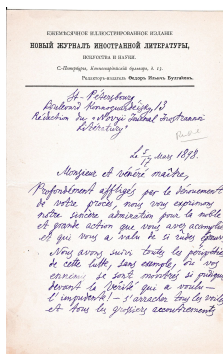 ЕЖЕМѢСЯЧНОЕ ИЛЛЮСТРИРОВАННОЕ ИЗДАНІЕ
НОВЫЙ ЖУРНАЛЪ ИНОСТРАННОЙ ЛИТЕРАТУРЫ,
ИСКУССТВА И НАУКИ.
С.-Петербургъ,
Редакторъ-издатель Ѳедоръ Ильичъ Булгаковъ.
St. Pétersbourg
Boulevard 13
Rédaction du "Novyi Journal Inostrannoi
Literatury"
Le 5/17 Mars 1898.
Monsieur et vénéré maître,
Profondément affligés par le dénouement
de votre procès, nous vous exprimons
notre sincère admiration pour la noble
et grande action que vous avez accomplie
et qui vous a valu de si rudes
Nous avons suivi toutes les péripéties
de cette lutte, sans exemple, où vos
ennemis se sont montrés si
devant la vérité qui a voulu –
l'impudente! – s'arracher tous les voiles
et tous les grossiers accoutrements